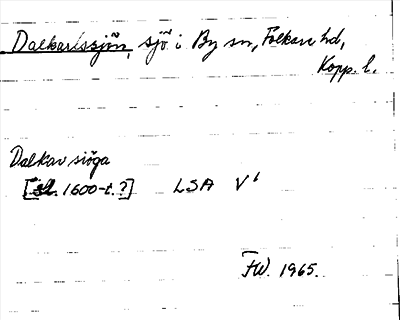 Dalkarlssjön, sjö i By sn, Folkare hd,
Kopp. l.
Dalkar siöga
[sl. 1600-t.?] LSA V¹
FW. 1965.